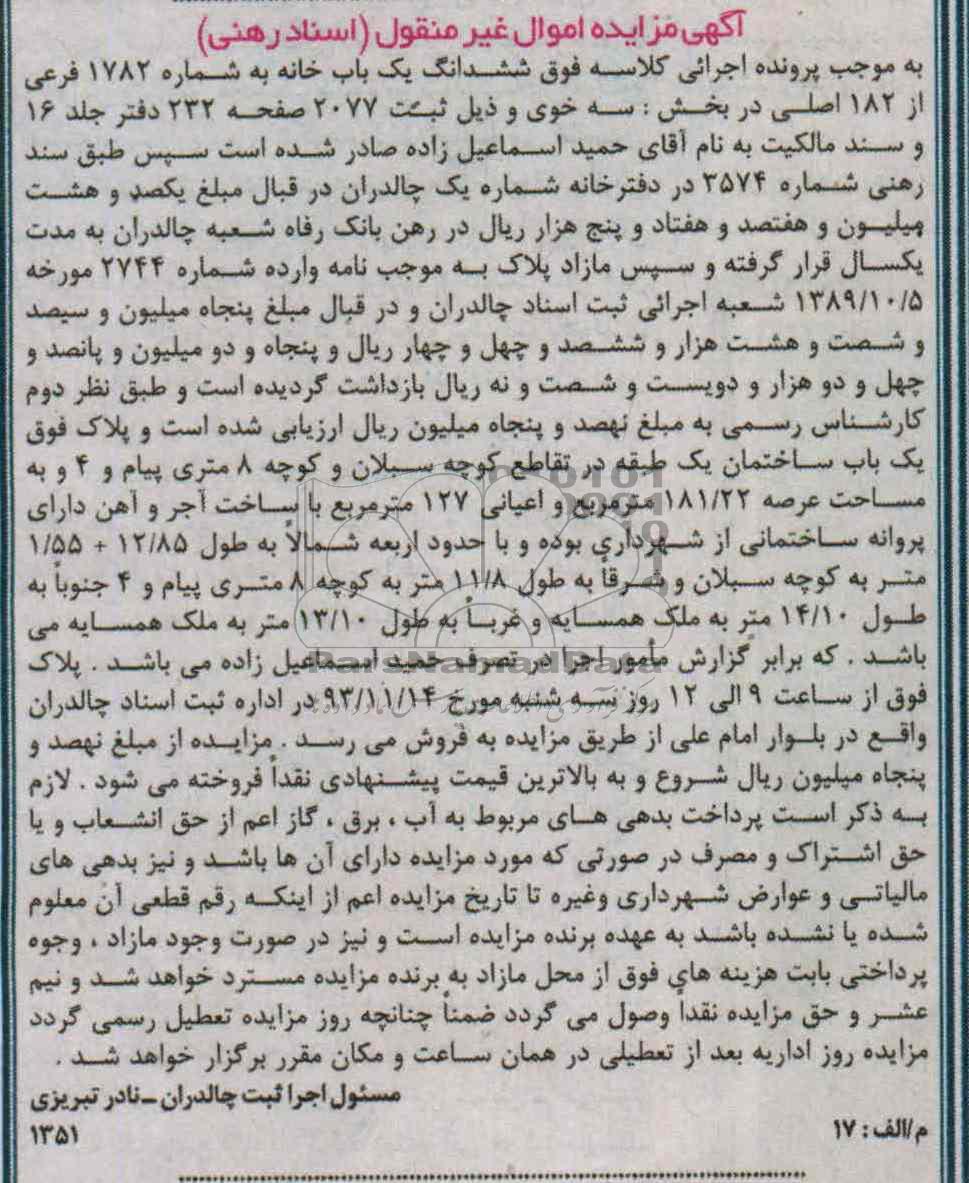 آگهی مزایده اموال غیر منقول (اسناد رهنی)
به موجب پرونده اجرائی کلاسه فوق ششدانگ یک باب خانه به شماره ۱۷۸۲ فرعی
از ۱۸۲ اصلی در بخش : سه خوی و ذیل ثبت ۲۰۷۷ صفحه ۲۳۲ دفتر جلد ۱۶
و سند مالکیت به نام آقای حمید اسماعیل زاده صادر شده است سپس طبق سند
رهنی شماره ۳۵۷۴ در دفترخانه شماره یک چالدران در قبال مبلغ یکصد و هشت
میلیون و هفتصد و هفتاد و پنج هزار ریال در رهن بانک رفاه شعبه چالدران به مدت
یکسال قرار گرفته و سپس مازاد پلاک به موجب نامه وارده شماره ۲۷۴۴ مورخه
۱۳۸۹/۱۰/۵ شعبه اجرائی ثبت اسناد چالدران و در قبال مبلغ پنجاه میلیون و سیصد
و شصت و هشت هزار و ششصد و چهل و چهار ریال و پنجاه و دو میلیون و پانصد و
چهل و دو هزار و دویست و شصت و نه ریال بازداشت گردیده است و طبق نظر دوم
کارشناس رسمی به مبلغ نهصد و پنجاه میلیون ریال ارزیابی شده است و پلاک فوق
یک باب ساختمان یک طبقه در تقاطع کوچه سبلان و کوچه ۸ متری پیام و ۴ و به
مساحت عرصه ۱۸۱/۲۲ مترمربع و اعیانی ۱۲۷ مترمربع با ساخت آجر و آهن دارای
پروانه ساختمانی از شهرداری بوده و با حدود اربعه شمالاً به طول ۱۲/۸۵ + ۱/۵۵
متر به کوچه سبلان و شرقاً به طول ۱۱/۸ متر به کوچه ۸ متری پیام و ۴ جنوباً به
طول ۱۴/۱۰ متر به ملک همسایه و غرباً به طول ۱۳/۱۰ متر به ملک همسایه می
باشد . که برابر گزارش مأمور اجرا در تصرف حمید اسماعیل زاده می باشد . پلاک
فوق از ساعت ۹ الی ۱۲ روز سه شنبه مورخ ۹۳/۱۱/۱۴ در اداره ثبت اسناد چالدران
واقع در بلوار امام علی از طریق مزایده به فروش می رسد . مزایده از مبلغ نهصد و
پنجاه میلیون ریال شروع و به بالاترین قیمت پیشنهادی نقداً فروخته می شود . لازم
به ذکر است پرداخت بدهی های مربوط به آب ، برق ، گاز اعم از حق انشعاب و یا
حق اشتراک و مصرف در صورتی که مورد مزایده دارای آن ها باشد و نیز بدهی های
مالیاتی و عوارض شهرداری وغیره تا تاریخ مزایده اعم از اینکه رقم قطعی آن معلوم
شده یا نشده باشد به عهده برنده مزایده است و نیز در صورت وجود مازاد ، وجوه
پرداختی بابت هزینه های فوق از محل مازاد به برنده مزایده مسترد خواهد شد و نیم
عشر و حق مزایده نقداً وصول می گردد ضمناً چنانچه روز مزایده تعطیل رسمی گردد
مزایده روز اداریه بعد از تعطیلی در همان ساعت و مکان مقرر برگزار خواهد شد .
مسئول اجرا ثبت چالدران -نادر تبریزی
م/الف: ۱۷
۱۳۵۱
ParsNamadData